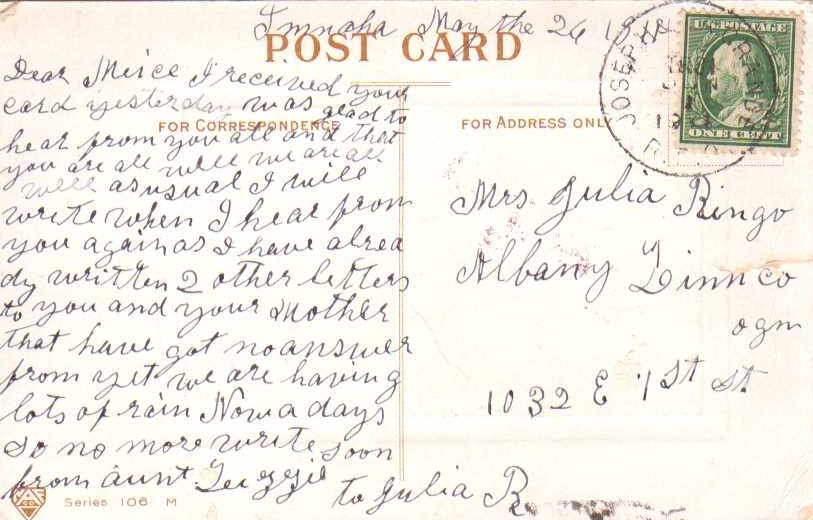 Imnaha May the 26 19
POST CARD
FOR CORRESPONDENCE
FOR ADDRESS ONLY
U.S. POSTAGE
ONE CENT
JOSEPH
R.P.O.
Dear Neice I received your
card yesterday was glad to
hear from you all and that
you are all well we are all
well as usual I will
write when I hear from
you again as I have alrea
dy written 2 other letters
to you and your Mother
that have got no answer
from yet we are having
lots of rain Now a days
so no more write soon
from aunt
to Julia R
Mrs Julia Ringo
Albany Linn co
ogn
1032 E 1st St
Series 106 M